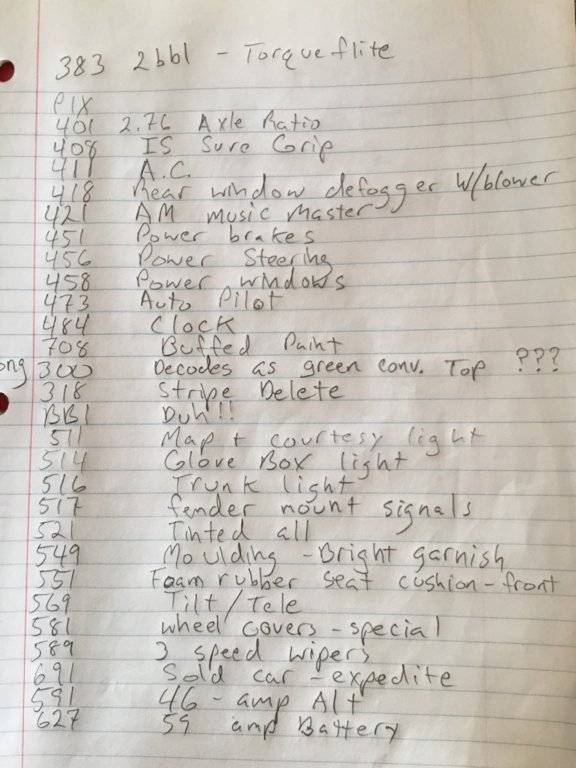 383 2bbl - Torqueflite
PIX
401 2.76 Axle Ratio
408 IS Sure Grip
411 A.C.
418 Rear window defogger W/blower
421 AM music Master
451 Power brakes
456 Power Steering
458 Power windows
473 Auto Pilot
484 Clock
708 Buffed Paint
ong 300 Decodes as green conv. Top ???
318 Stripe Delete
BB1 Duh!!
511 Map + courtesy light
514 Glove Box light
516 Trunk light
517 fender mount signals
521 Tinted all
549 Moulding - Bright garnish
551 Foam rubber seat cushion - front
569 Tilt/Tele
581 wheel covers - special
589 3 speed wipers
691 Sold car - expedite
591 46 - amp Alt
627 59 amp Battery